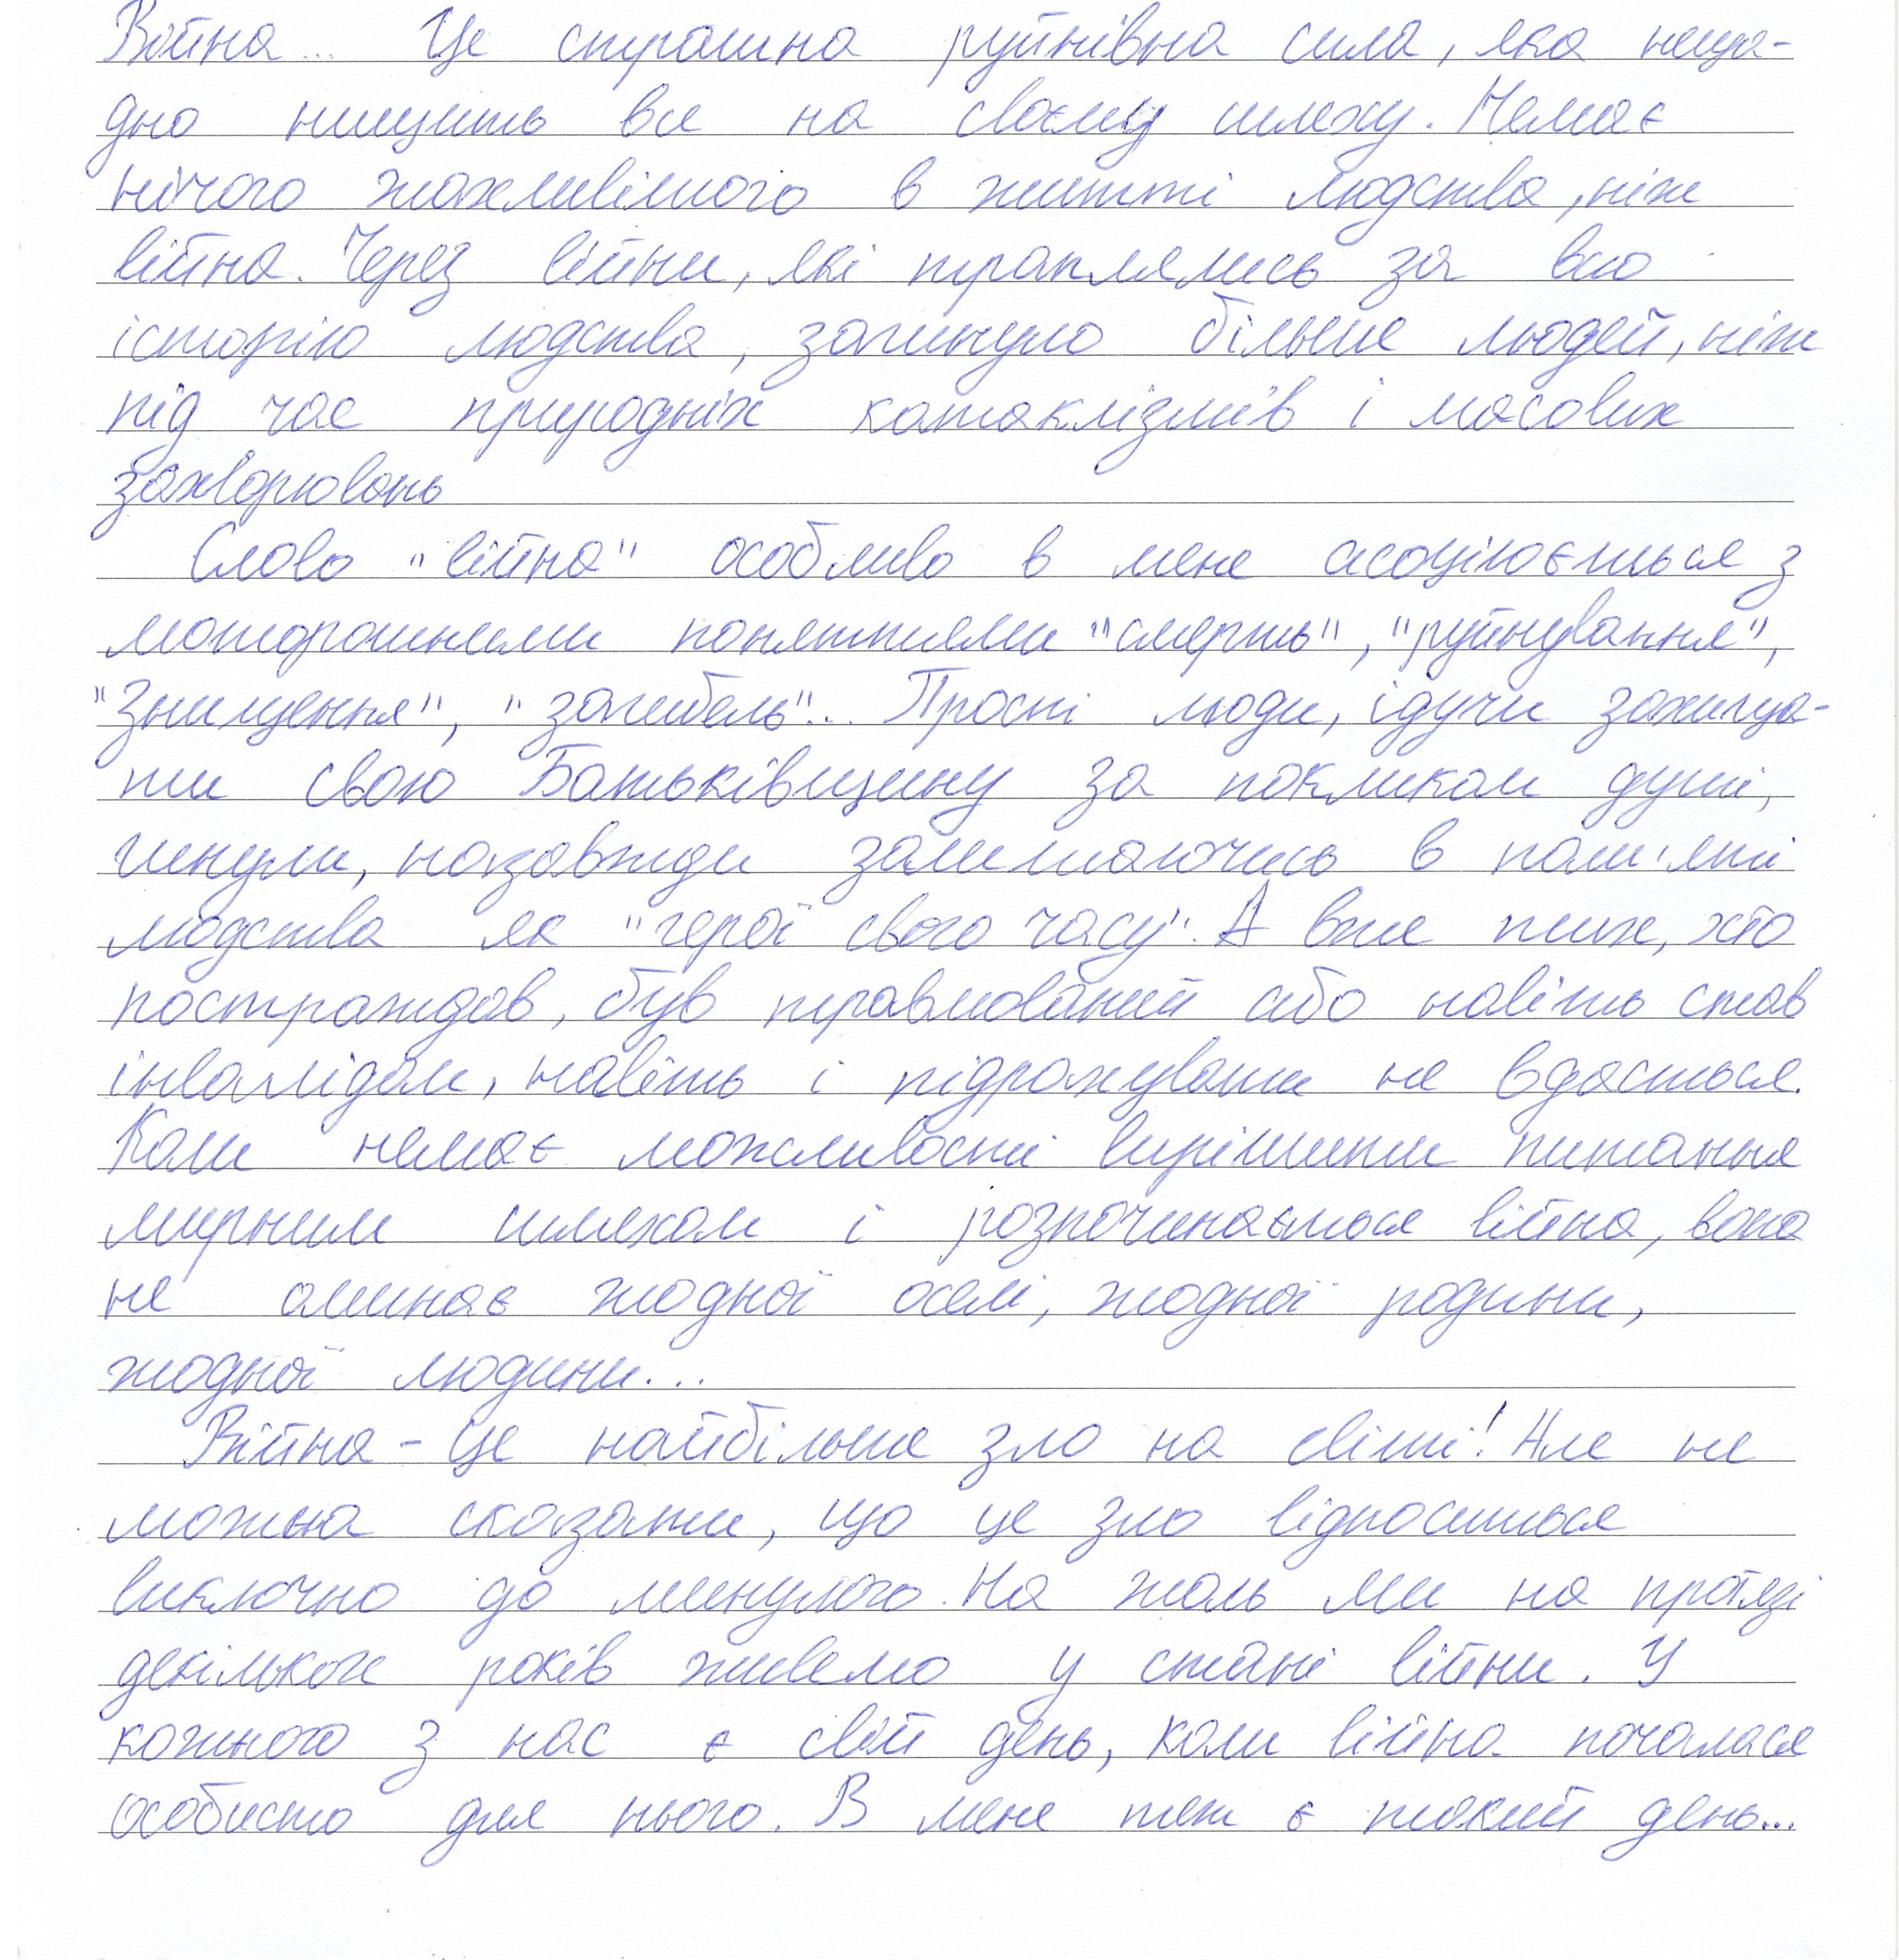 Війна... Це страшна руйнівна сила, яка неща-
дно нищить все на своєму шляху. Немає
нічого жахливішого в житті людства, ніж
війна. Через війни, які траплялись за всю
історію людства, загинуло більше людей, ніж
під час природніх катаклізмів і масових
захворювань
Слово "війна" особливо в мене асоціюється з
моторошними поняттями "смерть", "руйнування",
"Знищення", "загибель"... Прості люди, ідучи захища-
ти свою Батьківщину за покликом душі,
гинули, назавжди залишаючись в пам'яті
людства як "герої свого часу". А вже тих, хто
постраждав, був травмований або навіть став
інвалідом, навіть і підрахувати не вдасться.
Коли немає можливості вирішити питання
мирним шляхом і розпочинається війна, вона
не оминає жодної оселі, жодної родини,
жодної людини...
Війна - це найбільше зло на світі! Але не
можна сказати, що це зло відноситься
виключно до минулого. На жаль ми на протязі
декількох років живемо у стані війни. У
кожного з нас є свій день, коли війна почалася
особисто для нього. В мене теж є такий день...